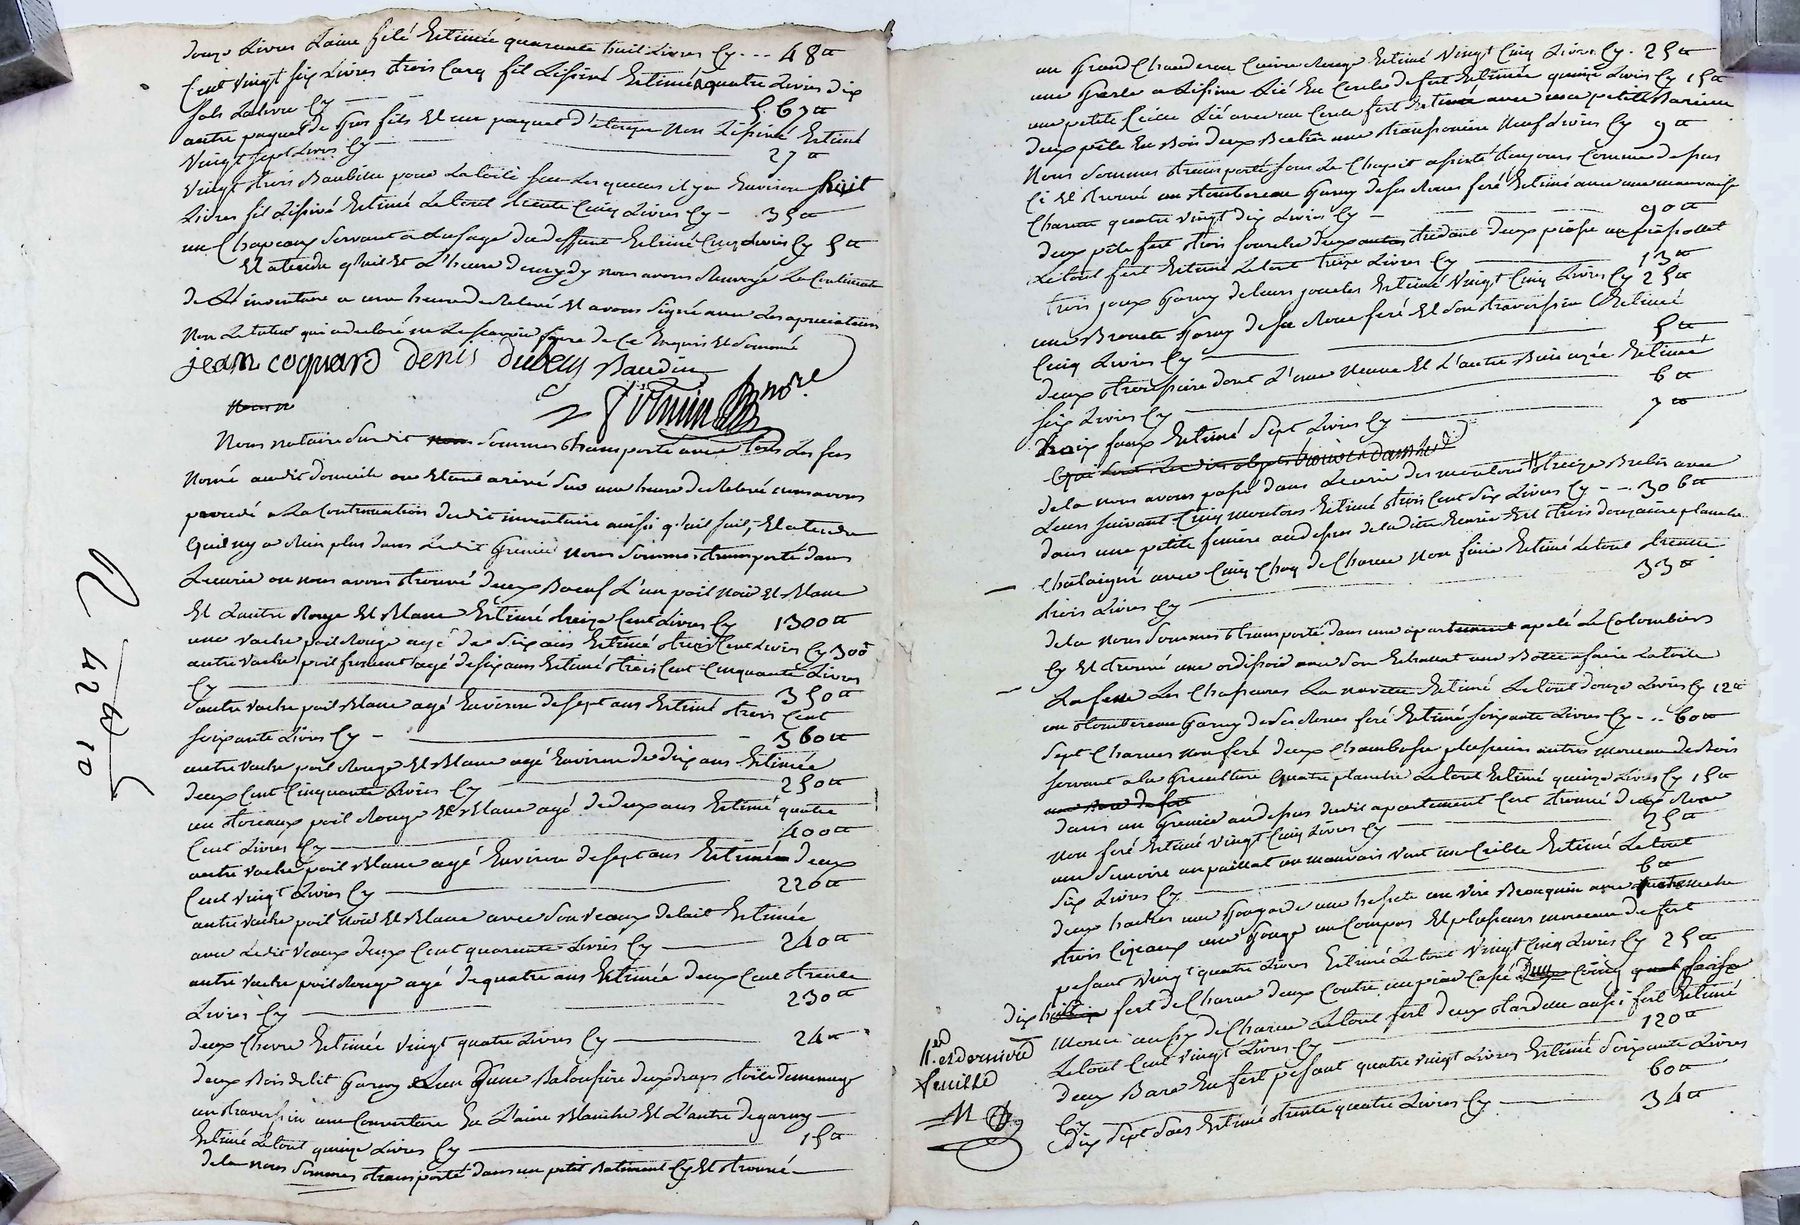 douze Livres Laine filé Estimée quarente huit Livres Cy ... 48tt
Cent vingt six Livres trois Carq fil Lissivé Estimé a quatre Livres dix
sols La livre Cy 567tt
autre paquet de Gros fils Et un paquet d'etoupe Non Lissivé Estimé
Vingt sept Livres Cy 27tt
Vingt trois Baubine pour La toile sur Lesquene il ya Environ huit
Livres fil Lissivé Estimé Le tout trente Cinq Livres Cy - 35tt
un Chapeaux servant a Lusage du deffunt Estimé Cinq Livres Cy 5tt
Et atendu qu'il Est a L'heure de mydy nous avons Renvoyé La Continuation
de L'inventaire a une heure de Relevé Et avons signé avec Les apreciateurs
Non Le tuteur qui a declaré ne Le scavoir faire de Ce Enquis Et sommé
jean coquard denis dubecy Baudin
not.re
Nous notaire susdit sommes transporté avec tous Les sus
Nomé au dit domicile ou Etant arivé sur une heure de Relevé nous avons
procedé a La Continuation du dit inventaire ainsi q'uil suit, Et atendu
Quil ny a Rien plus dans Le dit Grenier nous sommes transporté dans
Lecurie ou nous avons trouvé deux Boeuf L'un poil noir Et Blanc
Et Lautre Rouge Et Blanc Estimé treize Cent Livres Cy 1300tt
une vache poil Rouge agé de six ans Estimé trois Cent Livres Cy 300
autre vache poil froment agé de six ans Estimé trois Cent Cinquante Livres
Cy 350tt
autre vache poil Blanc agé Environ de sept ans Estimé trois Cent
soixante Livres Cy - 360tt
autre vache poil Rouge Et Blanc agé Environ de dix ans Estimée
deux Cent Cinquante Livres Cy 250tt
un toreaux poil Rouge Et Blanc agé de deux ans Estimé quatre
Cent Livres Cy 400tt
autre vache poil Blanc agé Environ de sept ans Estimée deux
Cent vingt Livres Cy 220tt
autre vache poil noir Et Blanc avec son veaux de lait Estimée
avec Le dit veaux deux Cent quarente Livres Cy 240tt
autre vache poil Rouge agé de quatre ans Estimée deux Cent trente
Livres Cy 230tt
deux Chevre Estimée vingt quatre Livres Cy 24tt
deux Bois de lit Garny Lun d'une Baloufiere deux draps toile de menage
un traversin une Couverture En Laine Blanche Et L'autre degarny
Estimé Le tout quinze Livres Cy 15tt
de la nous sommes transporté dans un petit Batiment Cy Et trouvé
42 10
un Grand Chauderon Cuivre Rouge Estimé Vingt Cinq Livres Cy . 25tt
une Gerle a Lissive Lié En Cercle de fert Estimée quinze Livres Cy 15tt
une petite seille Lié avec un Cercle fert Estimée avec une petite
deux pele En Bois deux une Neuf Livres Cy 9tt
Nous sommes transporté sous Le Chapit assisté toujours Comme dessus
Ci Et trouvé un tombereau Garny de ses Roues feré Estimé avec une mauvaise
Charette quatre vingt dix Livres Cy - 90tt
deux pele fert trois fourche deux trident deux pioche un piochotet
Le tout fert Estimé Le tout treize Livres Cy 13tt
trois joux Garny de leurs joucles Estimé Vingt Cinq Livres Cy 25tt
une Brouette Garny de sa Roue feré Et son traversin Estimé
Cinq Livres Cy 5tt
deux dont L'une Neuve Et L'autre Bien uzée Estimé
six Livres Cy 6tt
trois faux Estimé sept Livres Cy 7tt
de la nous avons passé dans Lecurie des moutons treize Brebis avec
Leurs suivant Cinq moutons Estimé trois Cent six Livres Cy - - 306tt
dans une petite feniere au dessus de la dite Ecurie Est trois douzaine planche
Chataigné avec Cinq de Charue Non finie Estimé Le tout trente
trois Livres Cy 33tt
de la nous sommes transporté dans une apartement apelé Le Colombiers
Cy Et trouvé une ordissoir avec son un a faire La toile
La navette Estimé Le tout douze Livres Cy 12tt
un tombereau Garny de ses Roues feré Estimé soixante Livres Cy - .. 60tt
sept Charues non feré deux plusieurs autres morceau de Bois
servant a la Griculture quatre planche Le tout Estimé quinze Livres Cy 15tt
dans un Grenier au dessus du dit apartement Cont trouvé deux Roue
Non feré Estimé vingt Cinq Livres Cy 25tt
une un paillat un mauvais vent une Crible Estimé Le tout
Six Livres Cy 6tt
deux haches une une une
trois Cizeaux une Gouge un Compas Et plusieurs morceau de fert
pesant vingt quatre Livres Estimé Le tout vingt Cinq Livres Cy 25tt
dix huit fert de Charue deux Coutre un
Le tout fert deux aussi fert Estimé
Le tout Cent vingt Livres Cy 120tt
deux Bare En fert pesant quatre vingt Livres Estimé soixante Livres
Cy 60tt
dix sept sacs Estimé trente quatre Livres Cy 34tt
et derniere
feuille